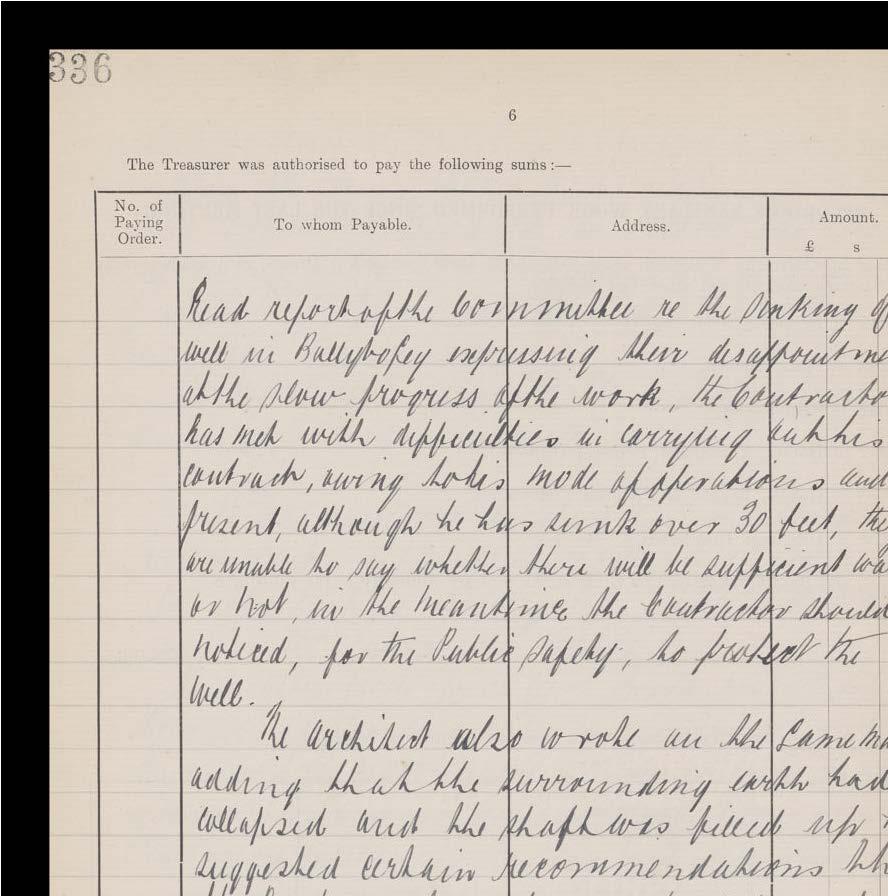 336
6
The Treasurer was authorised to pay the following sums :—
No. of Paying Order.
To whom Payable.
Address.
Amount.
£ s
Read report of the Committee re the sinking of
well in Ballybofey expressing their disappointme
at the slow progress of the work, the Contracto
has met with difficulties in carrying out his
contract, owing to his mode of operations and
present, although he has sunk over 30 feet, the
are unable to say whether there will be sufficient wa
or not, in the meantime the Contractor should
noticed, for the Public safety, to protect the
well.
The architect also wrote on the same ma
adding that the surrounding earth had
collapsed and the shaft was filled up
suggested certain recommendations th